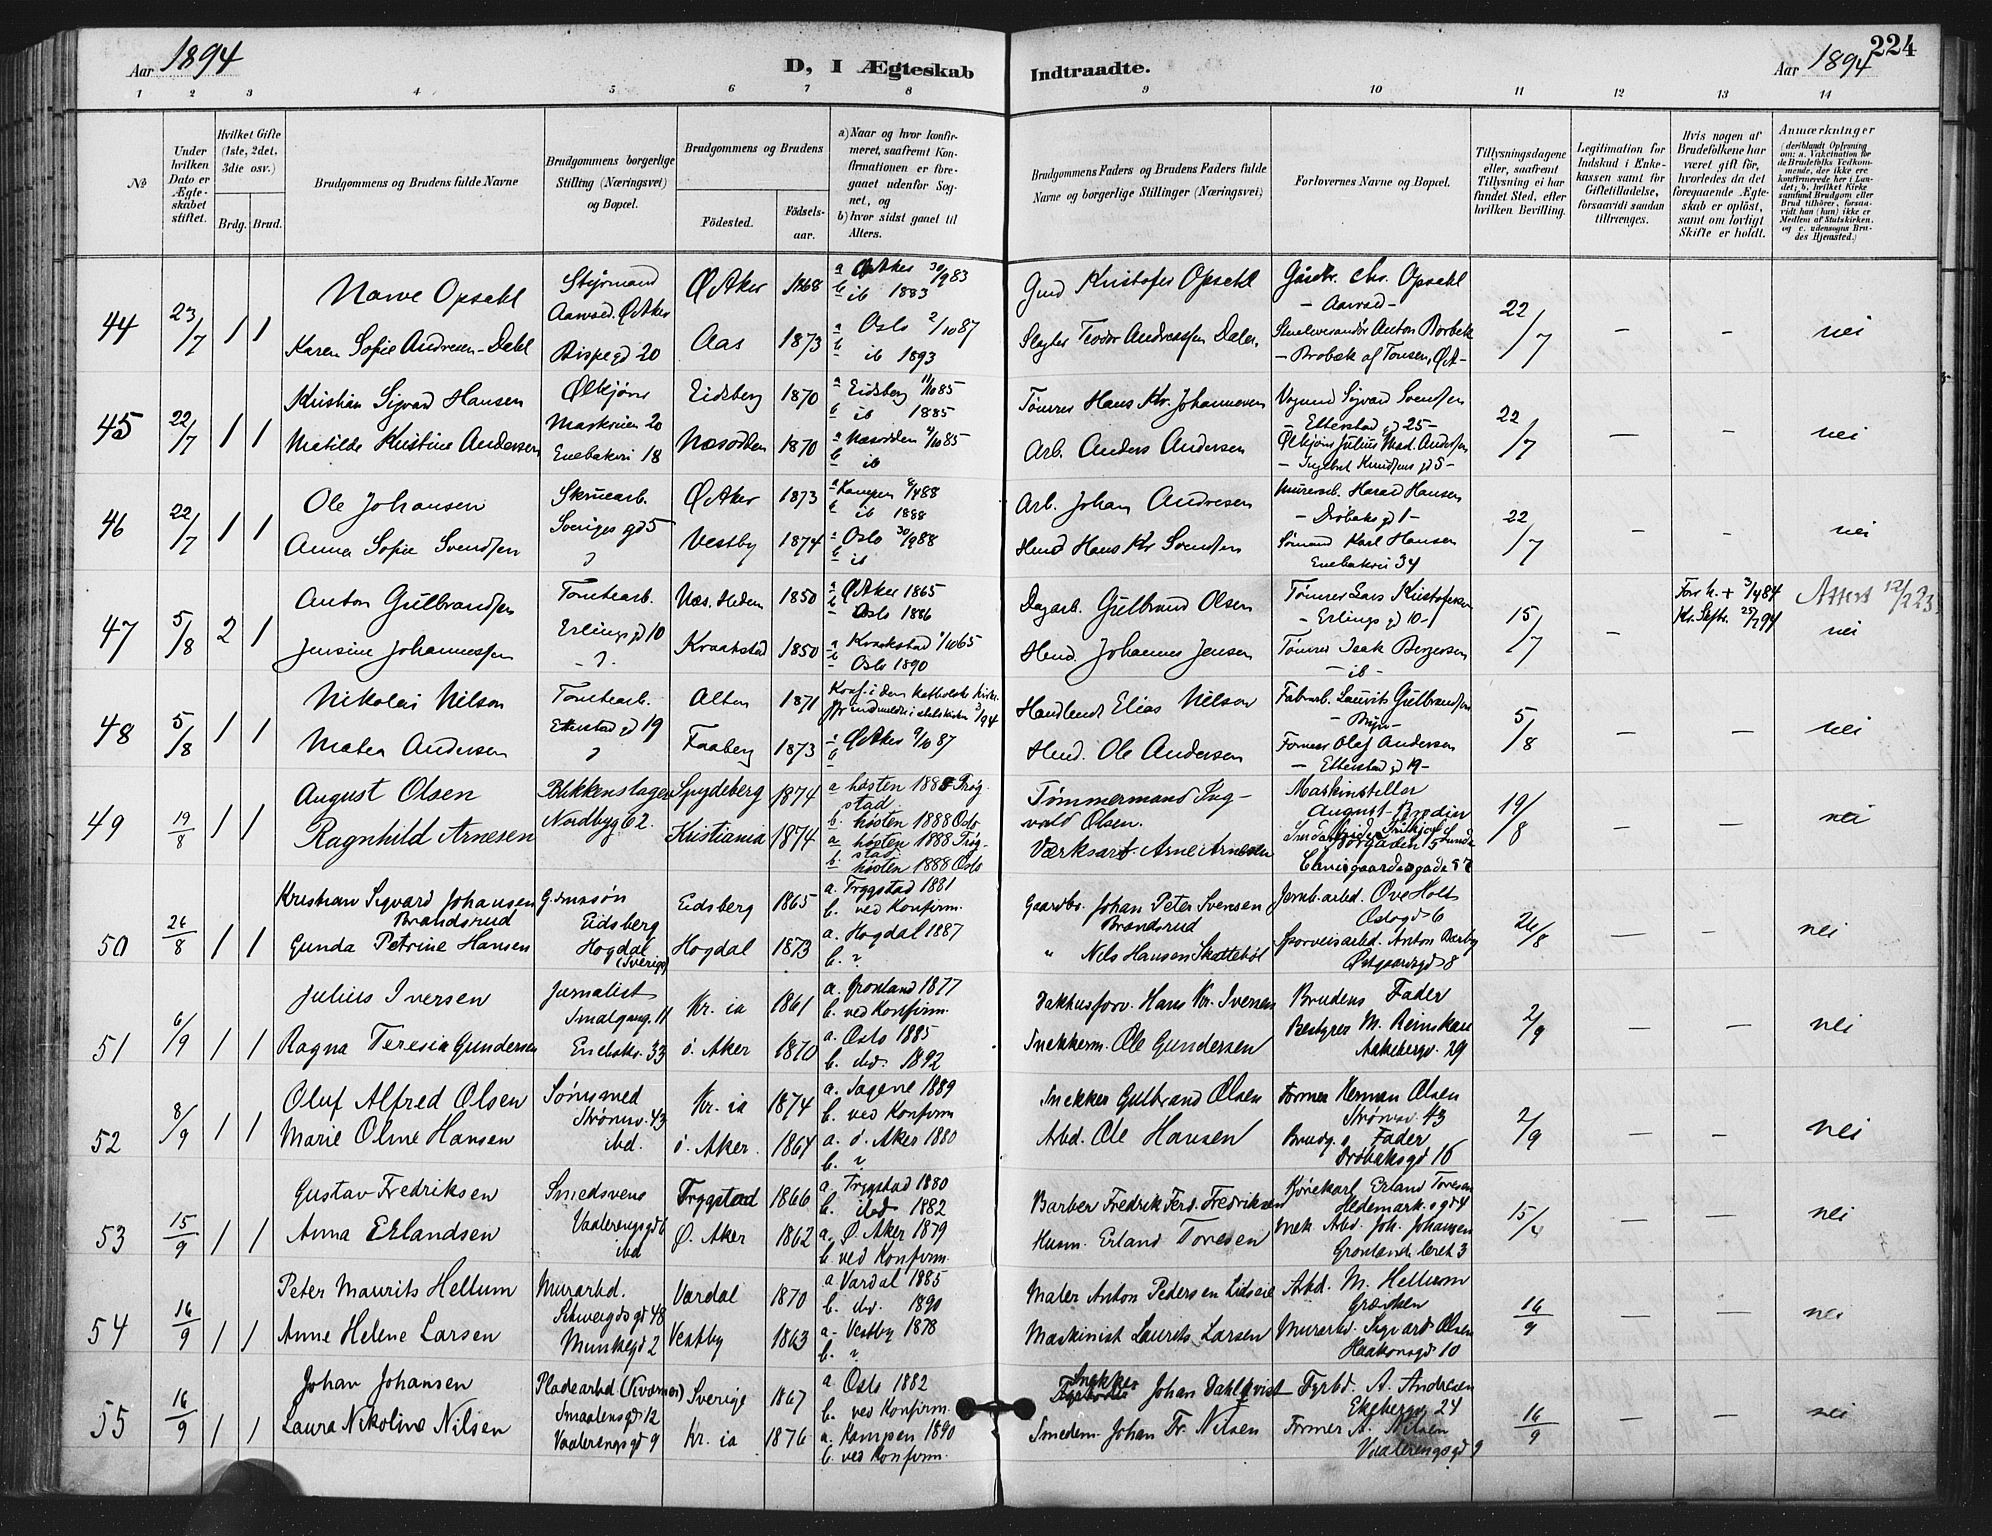 Aar 1894
D, I Ægteskab
Indtraadte.
Aar 1894
224
1 2 3 4 5 6 7 8 9 10 11 12 13 14
No
Under hvilken Dato er Ægteskabet stiftet.
Hvilket Gifte (1ste, 2det, 3die osv.)
Brdg. Brud.
Brudgommens og Brudens fulde Navne
Brudgommens borgerlige Stilling (Næringsvei) og Bopæl.
Brudgommens og Brudens
Fødested.
Fødselsaar.
a) Naar og hvor konfirmeret, saafremt Konfirmationen er foregaaet udenfor Sognet, og
b) hvor sidst gaaet til Alters.
Brudgommens Faders og Brudens Faders fulde Navne og borgerlige Stillinger (Næringsvei)
Forlovernes Navne og Bopæl.
Tillysningsdagene eller, saafremt Tillysning ei har fundet Sted, efter hvilken Bevilling.
Legitimation for Indskud i Enkekassen samt for Giftetilladelse, forsaavidt saadan tiltrænges.
Hvis nogen af Brudefolkene har været gift før, hvorledes da det foregaaende Ægteskab er opløst, samt om lovligt Skifte er holdt.
Anmærkninger
44 23/7 1 1
Narve Opsahl
Karen Sofie Andresen-Dahl
Styrmand
Bispegd 20
Ø Aker 1868
Aas 1873
a Ø Aker 30/9 83
b ib 1883
a Oslo 2/10 87
b ib 1893
Gmd Kristofer Opsahl
Chr. Opsahl
22/7 – – nei
45 22/7 1 1
Kristian Sigvard Hansen
Matilde Kristine Andersen
Ølkjører
Enebakvei 18
Eidsberg 1870
Næsodden 1870
a Eidsberg 11/10 85
b ib 1885
a Næsodden 4/10 85
b ib
Tømrer Hans Kr. Johannesen
Arb. Anders Andersen
Vognmd Sigvard Svendsen
– Etterstad gd 25 –
22/7 – – nei
46 22/7 1 1
Ole Johansen
Anna Sofie Svendsen
Skruearb.
Sveriges gd 5
?
Ø Aker 1873
Vestby 1874
a Kampen 8/4 88
b ib 1888
a Oslo 30/9 88
b ib
Arb. Johan Andresen
Hmd Hans Kr Svendsen
Murerarb. Harald Hansen
– Drøbaks gd 1 –
Sømand Karl Hansen
Enebakvei 34
22/7 – – nei
47 5/8 2 1
Anton Gulbrandsen
Jensine Johannessen
Tomtearb.
Erlings gd 10
– ? –
Næs. Hedem 1850
Kraakstad 1850
a Ø Aker 1865
b Oslo 1886
a Kraakstad 1/10 65
b Oslo 1890
Dagarb. Gulbrand Olsen
Hmd. Johannes Jensen
Tømrer Lars Kristofersen
– Erlings gd 10 –
Tømrer Isak Bergersen
– ib –
15/7 –
nei
Attest 12/2 23
48 5/8 1 1
Nikolai Nilson
Maten Andersen
Tomtearb.
Etterstad gd 19
?
Alten 1871
Faaberg 1873
a Ø Aker 9/10 87
Handlende Elias Nilson
Hmd. Ole Andersen
Fabrarb. Laurits Gulbrandsen
– Bryn –
Former Olaf Andersen
– Etterstad gd 19 –
5/8 – – nei
49 19/8 1 1
August Olsen
Ragnhild Arnesen
Blikkenslager
Nordbyg 62.
Spydeberg 1874
Kristiania 1874
a høsten 1888 Trøgstad.
b. høsten 1888 Oslo
a høsten 1888 Trøgstad
b. høsten 1888 Oslo
Tømmermand Ingvald Olsen.
Værksarb. Arne Arnesen
Maskinstiller
19/8 – – nei
50 26/8 1 1
Kristian Sigvard Johansen
Brandsrud
Gunda Petrine Hansen
G.mssøn
Eidsberg
Hogdal
(Sverige)
Eidsberg 1865
Hogdal 1873
a. Tryggstad 1881
b. ved Konfirm.
a. Hogdal 1887
b. ?
Gaardbr. Johan Peter Svensen
Brandsrud
" Nils Hansen Skottebøl
Jernb. arbed. Ove Holt
Oslogd 6
Sporveisarbd. Anton Børby
Østgaardsgd 8
26/8 – – nei
51 6/9 1 1
Julius Iversen
Ragna Teresia Gundersen
Jurnalist
Smalgang. 11
Enebakv. 33
Kr. ia 1861
ö. Aker 1870
a. Grønland 1877
b. ved Konfirm.
a. Oslo 1885
b. ibd. 1892
Pakhusforv. Hans Kr. Iversen
Snekkerm. Ole Gundersen
Brudens Fader
Bestyrer M. Reinskau
Aakebergv. 29
2/9 – – nei
52 8/9 1 1
Oluf Alfred Olsen
Marie Oline Hansen
Sømsmed
Strømsv. 43
ibd.
Kr. ia 1874
ö. Aker. 1864
a. Sagene 1889
b. ved Konfirm
a. ö. Aker 1880
b. ?
Snekker Gulbrand Olsen
Arbd. Ole Hansen
Former Herman Olsen
Strømsv. 43
Brudg. s Fader
Drøbaksgd 16
2/9 – – nei
53 15/9 1 1
Gustav Fredriksen
Anna Erlandsen
Smedsvend
Vaalerengsgd 6
ibd
Tryggstad 1866
Ø. Aker 1862
a. Tryggstad 1880
b. ibd 1882
a. Ø. Aker 1879
b. ved Konfirm.
Barber Fredrik Ferd. Fredriksen
Husm. Erland Toresen
Kjørekarl Erland Toresen
Hedemark.s gd 4
Mek. Abd. Joh. Johansen
Grønlands leret 3
– – nei
54 16/9 1 1
Peter Maurits Hellum
Anne Helene Larsen
Murarbd.
Schweigdsgd 48
Munkegd 2
Vardal 1870
Vestby 1863
a Vardal 1885
b. ibd. 1890
a. Vestby 1878
b. ?
Maler Anton Pedersen Lidseie
Maskinist Laurets Larsen
Arbd. M. Hellum
Murarbd. Sigvard Olsen
Haakonsgd 10
16/9 – – nei
55 16/9 1 1
Johan Johansen
Laura Nikoline Nilsen
Pladearbd (Kværner)
Smaalensgd 12
Vaalerengsgd 9
Sverige 1867
Kr. ia 1876
a. Oslo 1882
b. ved Konfirm.
a. Kampen 1890
b. ved Konfirm.
Snekker Johan Dahlqvist
Smedem. Johan Fr. Nilsen
Fyrbd. A. Andresen
Ekebergv. 24
Former A. Nilsen
Vaalerengsgd 9
16/9 – – nei